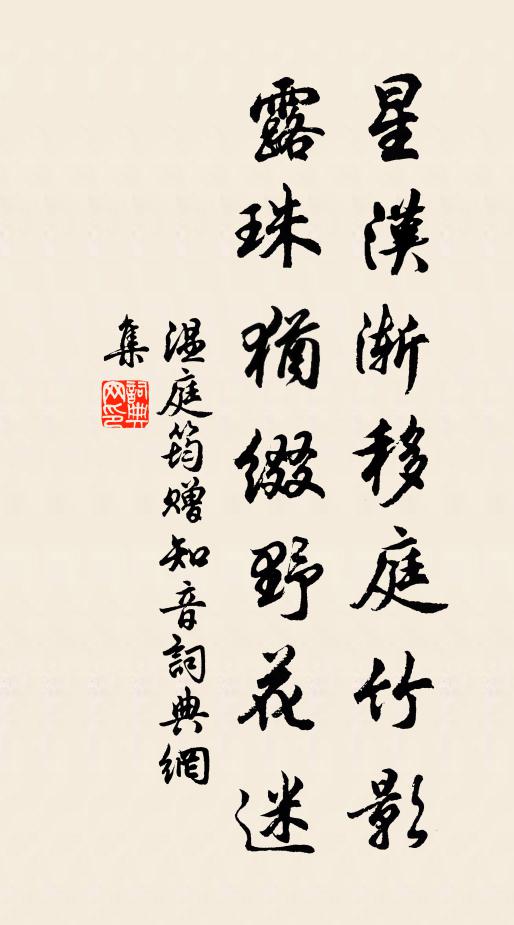 星漢漸移庭竹影
露珠猶綴野花迷
温庭筠贈知音詞典網
集
詞典
网印